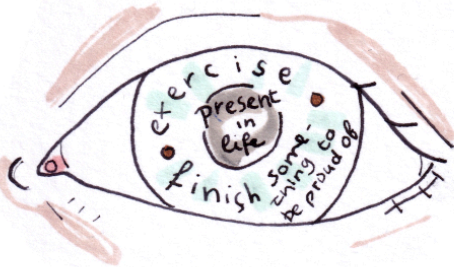 exercise
present
in
life
finish some-
thing to
be proud of